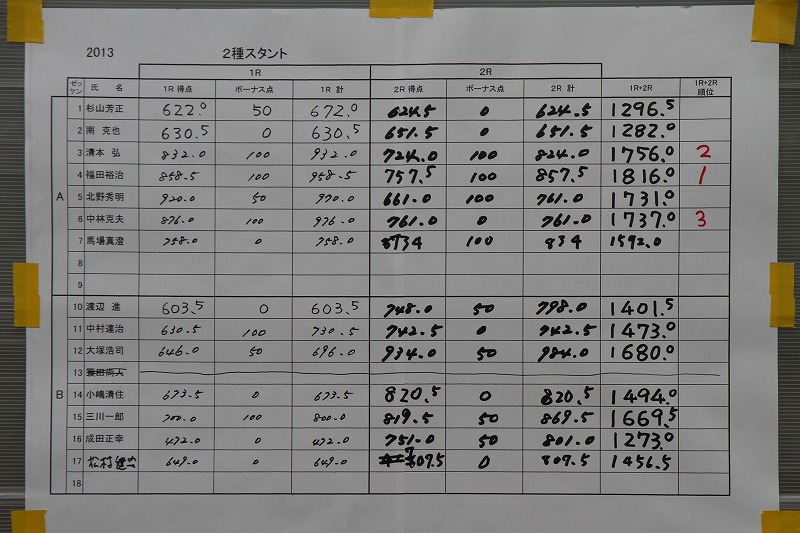 2013 2種スタント
1R 2R
ゼッケン 氏 名 1R 得点 ボーナス点 1R 計 2R 得点 ボーナス点 2R 計 1R+2R 1R+2R 順位
A
1 杉山芳正 622.0 50 672.0 624.5 0 624.5 1296.5
2 南 克也 630.5 0 630.5 651.5 0 651.5 1282.0
3 清本 弘 832.0 100 932.0 724.0 100 824.0 1756.0 2
4 福田裕治 858.5 100 958.5 757.5 100 857.5 1816.0 1
5 北野秀明 920.0 50 970.0 661.0 100 761.0 1731.0
6 中林克夫 876.0 100 976.0 761.0 0 761.0 1737.0 3
7 馬場真澄 758.0 0 758.0 734 100 834 1592.0
8
9
B
10 渡辺 進 603.5 0 603.5 748.0 50 798.0 1401.5
11 中村達治 630.5 100 730.5 742.5 0 742.5 1473.0
12 大塚浩司 646.0 50 696.0 934.0 50 984.0 1680.0
13
14 小嶋清住 673.5 0 673.5 820.5 0 820.5 1494.0
15 三川一郎 700.0 100 800.0 819.5 50 869.5 1669.5
16 成田正幸 472.0 0 472.0 751.0 50 801.0 1273.0
17 松村 649.0 0 649.0 807.5 0 807.5 1456.5
18